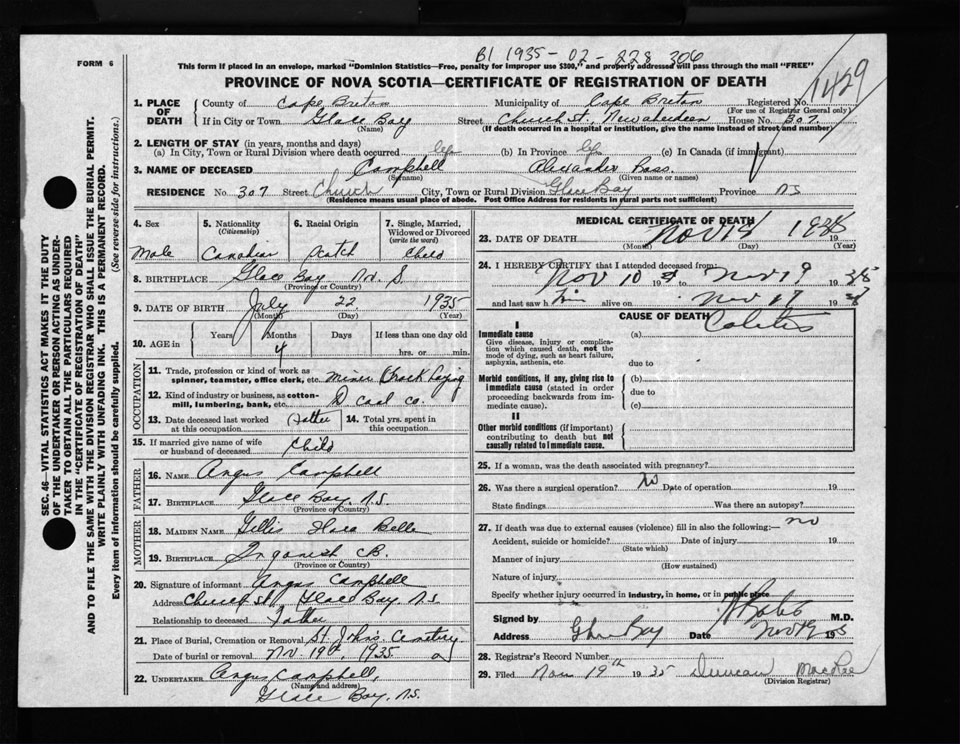 B1 1935-02-228 306
FORM 6
This form if placed in an envelope, marked "Dominion Statistics—Free, penalty for improper use $300," and properly addressed will pass through the mail "FREE"
PROVINCE OF NOVA SCOTIA—CERTIFICATE OF REGISTRATION OF DEATH
1429
1. PLACE OF DEATH County of Cape Breton Municipality of Cape Breton Registered No.
(For use of Registrar General only)
If in City or Town Glace Bay Street Church St., New Aberdeen House No. 307
(Name) (If death occurred in a hospital or institution, give the name instead of street and number)
2. LENGTH OF STAY (in years, months and days)
(a) In City, Town or Rural Division where death occurred life (b) In Province life (c) In Canada (if immigrant)
3. NAME OF DECEASED Campbell Alexander Ross
(Surname) (Given name or names)
RESIDENCE No. 307 Street Church City, Town or Rural Division Glace Bay Province NS
(Residence means usual place of abode. Post Office Address for residents in rural parts not sufficient)
4. Sex 5. Nationality (Citizenship) 6. Racial Origin 7. Single, Married, Widowed or Divorced (write the word)
Male Canadian Scotch Child
8. BIRTHPLACE Glace Bay N. S.
(Province or Country)
9. DATE OF BIRTH July 22 1935
(Month) (Day) (Year)
10. AGE in Years Months Days If less than one day old
4 hrs. or min.
OCCUPATION
11. Trade, profession or kind of work as spinner, teamster, office clerk, etc. Miner Track Laying
12. Kind of industry or business, as cotton-mill, lumbering, bank, etc. D coal co.
13. Date deceased last worked at this occupation Father 14. Total yrs. spent in this occupation
15. If married give name of wife or husband of deceased Child
FATHER
16. NAME Angus Campbell
17. BIRTHPLACE Glace Bay, N.S
(Province or Country)
MOTHER
18. MAIDEN NAME Gillis Flora Belle
19. BIRTHPLACE Inganish C.B.
(Province or Country)
20. Signature of informant Angus Campbell
Address Church St Glace Bay, N.S
Relationship to deceased Father
21. Place of Burial, Cremation or Removal St Johns Cemetery
Date of burial or removal Nov 19th, 1935
22. UNDERTAKER Angus Campbell,
(Name and address)
Glace Bay, N.S.
MEDICAL CERTIFICATE OF DEATH
23. DATE OF DEATH Nov 1935 19
(Month) (Day) (Year)
24. I HEREBY CERTIFY that I attended deceased from:
Nov 10 19 to Nov 19 1935
and last saw him alive on Nov 17 19
CAUSE OF DEATH
I
Immediate cause (a) Colitis
Give disease, injury or complication which caused death, not the mode of dying, such as heart failure, asphyxia, asthenia, etc. due to
Morbid conditions, if any, giving rise to immediate cause (stated in order proceeding backwards from immediate cause). (b)
due to
(c)
II
Other morbid conditions (if important) contributing to death but not causally related to immediate cause.
25. If a woman, was the death associated with pregnancy?
26. Was there a surgical operation? No Date of operation 19
State findings Was there an autopsy?
27. If death was due to external causes (violence) fill in also the following:— no
Accident, suicide or homicide? Date of injury 19
(State which)
Manner of injury
(How sustained)
Nature of injury
Specify whether injury occurred in industry, in home, or in public place
Signed by M.D.
Address Glace Bay Date Nov 19 1935
28. Registrar's Record Number
29. Filed Nov. 19th 1935 Duncan MacRae
(Division Registrar)
SEC. 46—VITAL STATISTICS ACT MAKES IT THE DUTY
OF THE UNDERTAKER OR PERSON ACTING AS UNDERTAKER TO OBTAIN ALL THE PARTICULARS REQUIRED
IN THE "CERTIFICATE OF REGISTRATION OF DEATH"
AND TO FILE THE SAME WITH THE DIVISION REGISTRAR WHO SHALL ISSUE THE BURIAL PERMIT.
WRITE PLAINLY WITH UNFADING INK. THIS IS A PERMANENT RECORD.
Every item of information should be carefully supplied. (See reverse side for instructions.)